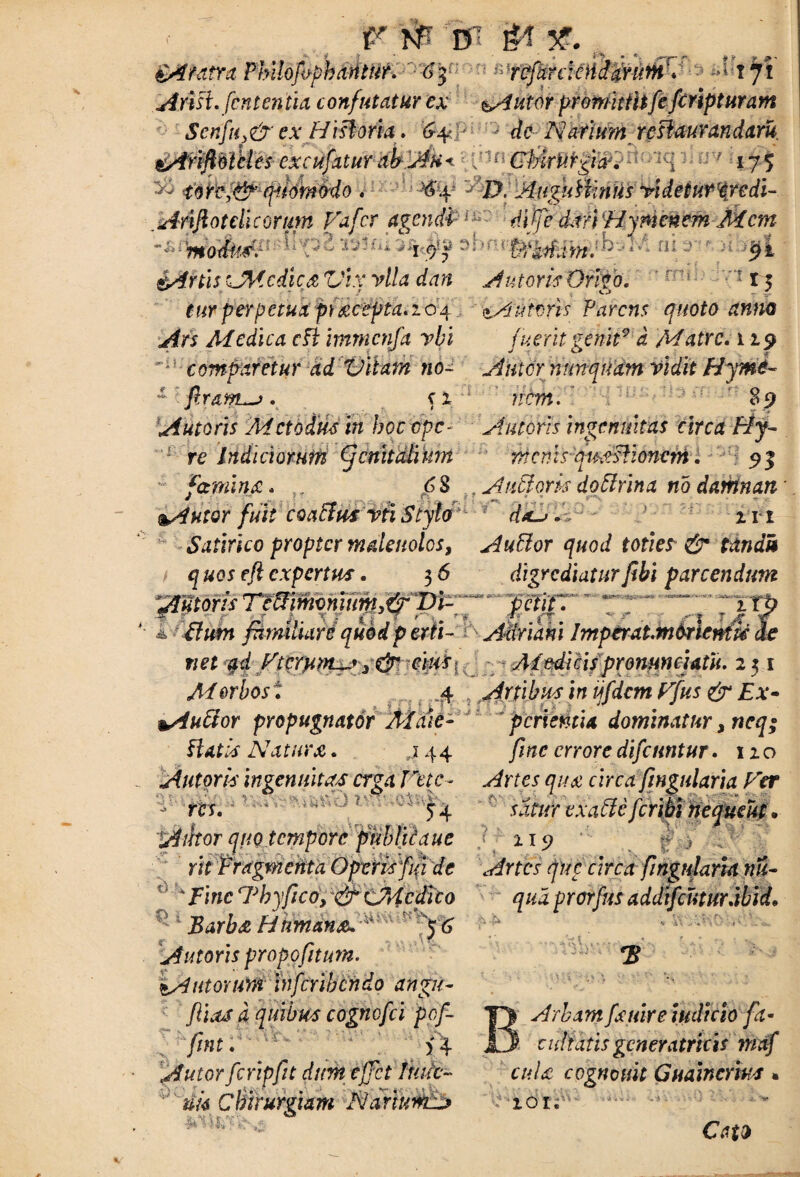 INDEX.
Aratra Philosophantur. 63
Arist. sententia confutatur ex
Sensu, & ex Historia. 64
Aristoteles excusatur ab Au-
tore, & quomodo. 64
Aristotelicorum Vafer agendi
modus. 195
Artis Medicæ Vix vlla dan
tur perpetua præcepta. 204
Ars Medica est immensa vbi
comparetur ad Vitam no-
stram. 52
Autoris Metodus in hoc ope-
re Indiciorum Genitalium
fæminæ. 68
Autor fuit coactus vti Stylo
Satirico propter maleuolos,
quos est expertus. 36
Autoris Testimonium, & Di-
ctum familiare quod perti-
net ad Vterum, & eius
Morbos. 4
Auctor propugnator Maie-
statis Naturæ. 144
Autoris ingenuitas erga Vete-
res. 54
Autor quo tempore publicaue
rit Fragmenta Operis sui de
Fine Physico, & Medico
Barbæ Humanæ. 56
Autoris propositum.
Autorum inscribendo angu-
stias à quibus cognosci pos-
sint. 54
Autor scripsit dum esset Iuue-
nis Chirurgiam Narium
resarciendarum. 171
Autor promittit se scripturam
de Narium restaurandarū
Chirurgia. 175
D. Augustinus videtur credi-
disse dari Hymenem Mem
branam. 91
Autoris Origo. 15
Autoris Parens quoto anno
fuerit genit⁹ à Matre. 129
Autor nunquam vidit Hyme-
nem. 89
Autoris ingenuitas circa Hy-
menis quæstionem. 93
Auctoris doctrina nō damnan
da. 211
Auctor quod toties & tandū
digrediatur sibi parcendum
petit. 219
Adriani Imperat. morientis de
Medicis pronunciatū. 231
Artibus in ijsdem Vsus & Ex-
perientia dominatur, neq;
sine errore discuntur. 120
Artes quæ circa singularia Ver
satur exactè scribi nequeūt.
219
Artes que circa singularia nū-
quā prorsus addiscūtur. ibid.
B
Barbam sæuire iudicio fa-
cultatis generatricis mas
culæ cognouit Guainerius.
201.
Cato